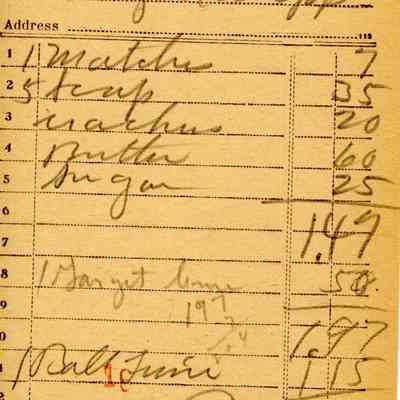 Address
1 1 Matches 7
2 5 Soap 35
3 crackers 20
4 Butter 60
5 Sugar 25
6
7 1.47
8 1 50
9 197
0 1.97
1 Ball 1.15
10